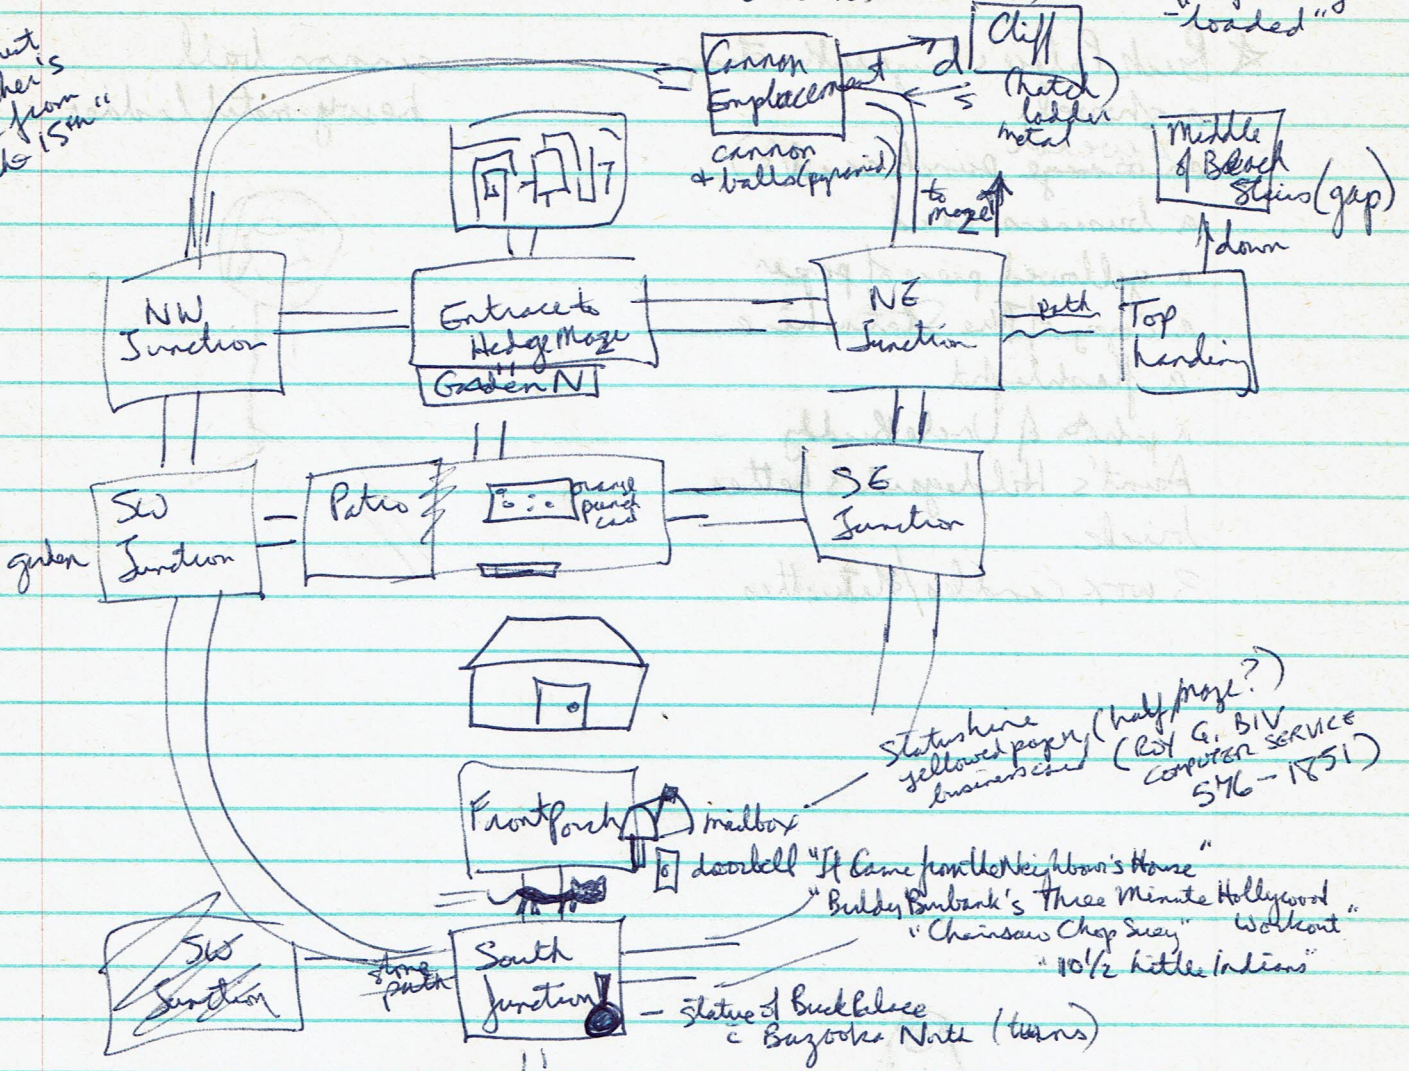 "loaded"
her's
from
15th"
Cliff
(hatch)
ladder
metal
Cannon
Emplacement
d
s
cannon
& balls (pyramid)
to
maze
Middle
of Beach
Stairs (gap)
down
NW
Junction
Entrace to
Hedge Maze
Garden N
NE
Junction
Path
Top
Landing
garden
SW
Junction
Patio
orange
punch
card
SE
Junction
Status Line
yellowed paper, (half maze?)
business card (ROY G. BIV
COMPUTER SERVICE
576-1851)
Front Porch
mailbox
doorbell "It Came from the Neighbour's House"
"Buddy Burbank's Three Minute Hollywood
Workout"
"Chainsaw Chop Suey"
"10 1/2 Little Indians"
SW
Junction
stone
path
South
Junction
- Statue of Buck Palace
c̄ Bazooka North (turns)